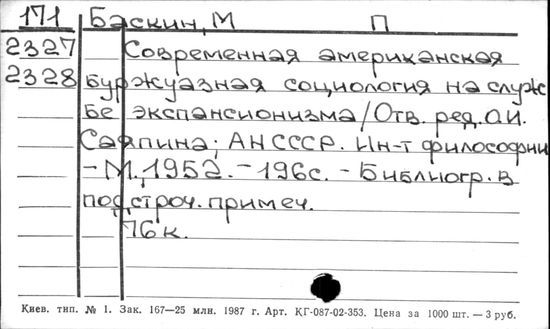 171 Баскин, М П
2327 Современная американская
2328 буржуазная социология на служ
бе экспансионизма / Отв. ред. О.И.
Саяпина; АН СССР. Ин-т философии
- М., 1952. - 196с. - Библиогр. в
подстроч. примеч.
76к.
Киев. тип. № 1. Зак. 167—25 млн. 1987 г. Арт. КГ-087-02-353. Цена за 1000 шт. — 3 руб.